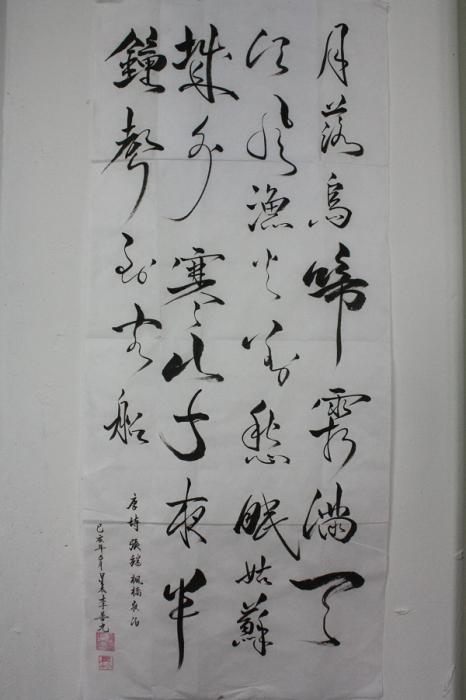 月落烏啼霜滿天
江楓漁火對愁眠姑蘇
城外寒山寺夜半
鐘聲到客船
唐詩張繼楓橋夜泊
己亥年月李善光